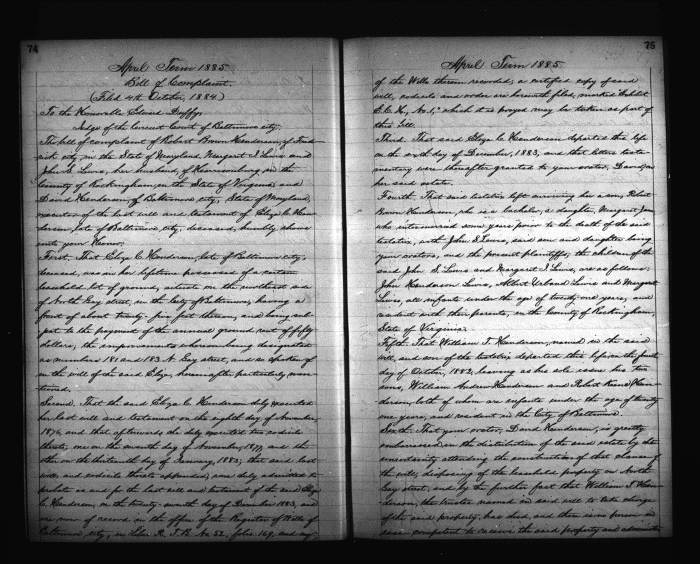 74
April Term 1885
Bill of Complaint.
(Filed 4th October, 1884)
To the Honorable Edward Duffy,
Judge of the Circuit Court of Baltimore city.
The bill of complaint of Robert Brown Henderson, of Fred-
rick city, in the State of Maryland, Margaret J. Lewis and
John S. Lewis, her husband, of Harrisonburg, in the
County of Rockingham, in the State of Virginia, and
David Henderson, of Baltimore city, State of Maryland,
executor of the last will and testament of Eliza C. Hen-
derson, late of Baltimore city, deceased, humbly shows
unto your Honor:
First. That Eliza C. Henderson, late of Baltimore city,
deceased, was in her lifetime possessed of a certain
leasehold lot of ground, situate on the east side
of North Gay street, in the City of Baltimore, having a
front of about twenty-five feet thereon, and being sub-
ject to the payment of the annual ground rent of fifty
dollars, the improvements whereon being designated
as numbers 181 and 183 N. Gay street, and is spoken of
in the will of the said Eliza, hereinafter particularly men-
tioned.
Second. That the said Eliza C. Henderson duly executed
her last will and testament on the eighth day of November,
1876, and that afterwards she duly executed two codicils
thereto, one on the seventh day of November, 1877, and the
other on the thirteenth day of January, 1883; that said last
will and codicils thereto appended, was duly admitted to
probate as and for the last will and testament of the said Eliza
C. Henderson, on the twenty-seventh day of December 1883, and
are now of record in the office of the Register of Wills of
Baltimore city, in Liber R. T. B. No. 52, folio 169, and seq.
75
April Term 1885.
of the Wills therein recorded; a certified copy of said
will, codicils and order are herewith filed, marked "Exhibit
E. C. H., No. 1," which it is prayed may be taken as part of
this bill.
Third. That said Eliza C. Henderson departed this life
on the day of December, 1883, and that letters testa-
mentary were thereafter granted to your orator, David, on
her said estate.
Fourth. That said testatrix left surviving her a son, Robert
Brown Henderson, who is a bachelor, a daughter, Margaret Jane,
who intermarried some years prior to the death of the said
testatrix, with John S. Lewis, said son and daughter being
your orators, and the present plaintiffs; the children of the
said John S. Lewis and Margaret J. Lewis, are as follows:
John Henderson Lewis, Albert Urband Lewis and Margaret
Lewis, all infants under the age of twenty one years, and
resident with their parents, in the County of Rockingham,
State of Virginia.
Fifth. That William T. Henderson, named in the said
will, and son of the testatrix departed this life on the first
day of October, 1882, leaving as his sole issue his two
sons, William Andrew Henderson and Robert Hen-
derson, both of whom are infants under the age of twenty
one years, and resident in the City of Baltimore.
Sixth. That your orator, David Henderson, is greatly
embarrassed in the distribution of the said estate by the
uncertainty attending the construction of that clause of
the will, disposing of the leasehold property on North
Gay street, and by the further fact that William T. Hen-
derson, the trustee named in said will to take charge
of the said property, has died, and there is no person in
esse competent to receive the said property and administer